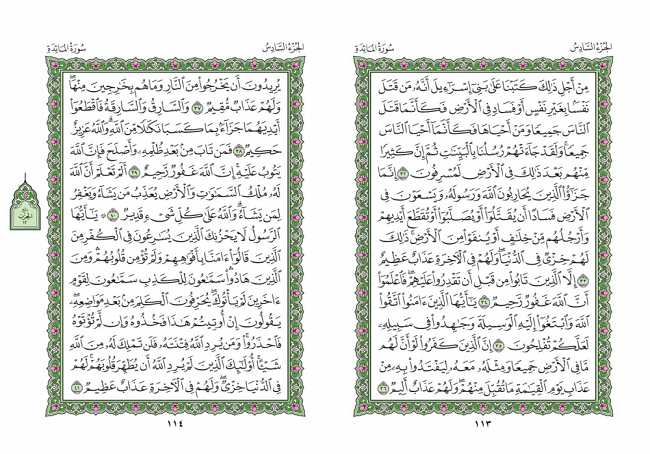 الجُزْءُ السَّادِسُ
سُورَةُ المَائِدَةِ
مِنْ أَجْلِ ذَٰلِكَ كَتَبْنَا عَلَىٰ بَنِىٓ إِسْرَٰٓءِيلَ أَنَّهُۥ مَن قَتَلَ
نَفْسًۢا بِغَيْرِ نَفْسٍ أَوْ فَسَادٍ فِى ٱلْأَرْضِ فَكَأَنَّمَا قَتَلَ
ٱلنَّاسَ جَمِيعًا وَمَنْ أَحْيَاهَا فَكَأَنَّمَآ أَحْيَا ٱلنَّاسَ
جَمِيعًا ۚ وَلَقَدْ جَآءَتْهُمْ رُسُلُنَا بِٱلْبَيِّنَٰتِ ثُمَّ إِنَّ كَثِيرًا
مِّنْهُم بَعْدَ ذَٰلِكَ فِى ٱلْأَرْضِ لَمُسْرِفُونَ ٣٢ إِنَّمَا
جَزَٰٓؤُا۟ ٱلَّذِينَ يُحَارِبُونَ ٱللَّهَ وَرَسُولَهُۥ وَيَسْعَوْنَ فِى
ٱلْأَرْضِ فَسَادًا أَن يُقَتَّلُوٓا۟ أَوْ يُصَلَّبُوٓا۟ أَوْ تُقَطَّعَ أَيْدِيهِمْ
وَأَرْجُلُهُم مِّنْ خِلَٰفٍ أَوْ يُنفَوْا۟ مِنَ ٱلْأَرْضِ ۚ ذَٰلِكَ
لَهُمْ خِزْىٌ فِى ٱلدُّنْيَا ۖ وَلَهُمْ فِى ٱلْءَاخِرَةِ عَذَابٌ عَظِيمٌ
٣٣ إِلَّا ٱلَّذِينَ تَابُوا۟ مِن قَبْلِ أَن تَقْدِرُوا۟ عَلَيْهِمْ ۖ فَٱعْلَمُوٓا۟
أَنَّ ٱللَّهَ غَفُورٌ رَّحِيمٌ ٣٤ يَٰٓأَيُّهَا ٱلَّذِينَ ءَامَنُوا۟ ٱتَّقُوا۟
ٱللَّهَ وَٱبْتَغُوٓا۟ إِلَيْهِ ٱلْوَسِيلَةَ وَجَٰهِدُوا۟ فِى سَبِيلِهِۦ
لَعَلَّكُمْ تُفْلِحُونَ ٣٥ إِنَّ ٱلَّذِينَ كَفَرُوا۟ لَوْ أَنَّ لَهُم
مَّا فِى ٱلْأَرْضِ جَمِيعًا وَمِثْلَهُۥ مَعَهُۥ لِيَفْتَدُوا۟ بِهِۦ مِنْ
عَذَابِ يَوْمِ ٱلْقِيَٰمَةِ مَا تُقُبِّلَ مِنْهُمْ ۖ وَلَهُمْ عَذَابٌ أَلِيمٌ ٣٦
١١٣
الجُزْءُ السَّادِسُ
سُورَةُ المَائِدَةِ
يُرِيدُونَ أَن يَخْرُجُوا۟ مِنَ ٱلنَّارِ وَمَا هُم بِخَٰرِجِينَ مِنْهَا ۖ
وَلَهُمْ عَذَابٌ مُّقِيمٌ ٣٧ وَٱلسَّارِقُ وَٱلسَّارِقَةُ فَٱقْطَعُوٓا۟
أَيْدِيَهُمَا جَزَآءًۢ بِمَا كَسَبَا نَكَٰلًا مِّنَ ٱللَّهِ ۗ وَٱللَّهُ عَزِيزٌ
حَكِيمٌ ٣٨ فَمَن تَابَ مِنۢ بَعْدِ ظُلْمِهِۦ وَأَصْلَحَ فَإِنَّ ٱللَّهَ
يَتُوبُ عَلَيْهِ ۗ إِنَّ ٱللَّهَ غَفُورٌ رَّحِيمٌ ٣٩ أَلَمْ تَعْلَمْ أَنَّ ٱللَّهَ
لَهُۥ مُلْكُ ٱلسَّمَٰوَٰتِ وَٱلْأَرْضِ يُعَذِّبُ مَن يَشَآءُ وَيَغْفِرُ
لِمَن يَشَآءُ ۗ وَٱللَّهُ عَلَىٰ كُلِّ شَىْءٍ قَدِيرٌ ٤٠ ۞ يَٰٓأَيُّهَا
ٱلرَّسُولُ لَا يَحْزُنكَ ٱلَّذِينَ يُسَٰرِعُونَ فِى ٱلْكُفْرِ مِنَ
ٱلَّذِينَ قَالُوٓا۟ ءَامَنَّا بِأَفْوَٰهِهِمْ وَلَمْ تُؤْمِن قُلُوبُهُمْ ۛ وَمِنَ
ٱلَّذِينَ هَادُوا۟ ۛ سَمَّٰعُونَ لِلْكَذِبِ سَمَّٰعُونَ لِقَوْمٍ
ءَاخَرِينَ لَمْ يَأْتُوكَ ۖ يُحَرِّفُونَ ٱلْكَلِمَ مِنۢ بَعْدِ مَوَاضِعِهِۦ ۖ
يَقُولُونَ إِنْ أُوتِيتُمْ هَٰذَا فَخُذُوهُ وَإِن لَّمْ تُؤْتَوْهُ
فَٱحْذَرُوا۟ ۚ وَمَن يُرِدِ ٱللَّهُ فِتْنَتَهُۥ فَلَن تَمْلِكَ لَهُۥ مِنَ ٱللَّهِ
شَيْـًٔا ۚ أُو۟لَٰٓئِكَ ٱلَّذِينَ لَمْ يُرِدِ ٱللَّهُ أَن يُطَهِّرَ قُلُوبَهُمْ ۚ لَهُمْ
فِى ٱلدُّنْيَا خِزْىٌ ۖ وَلَهُمْ فِى ٱلْءَاخِرَةِ عَذَابٌ عَظِيمٌ ٤١
١١٤
الحزب
١٢